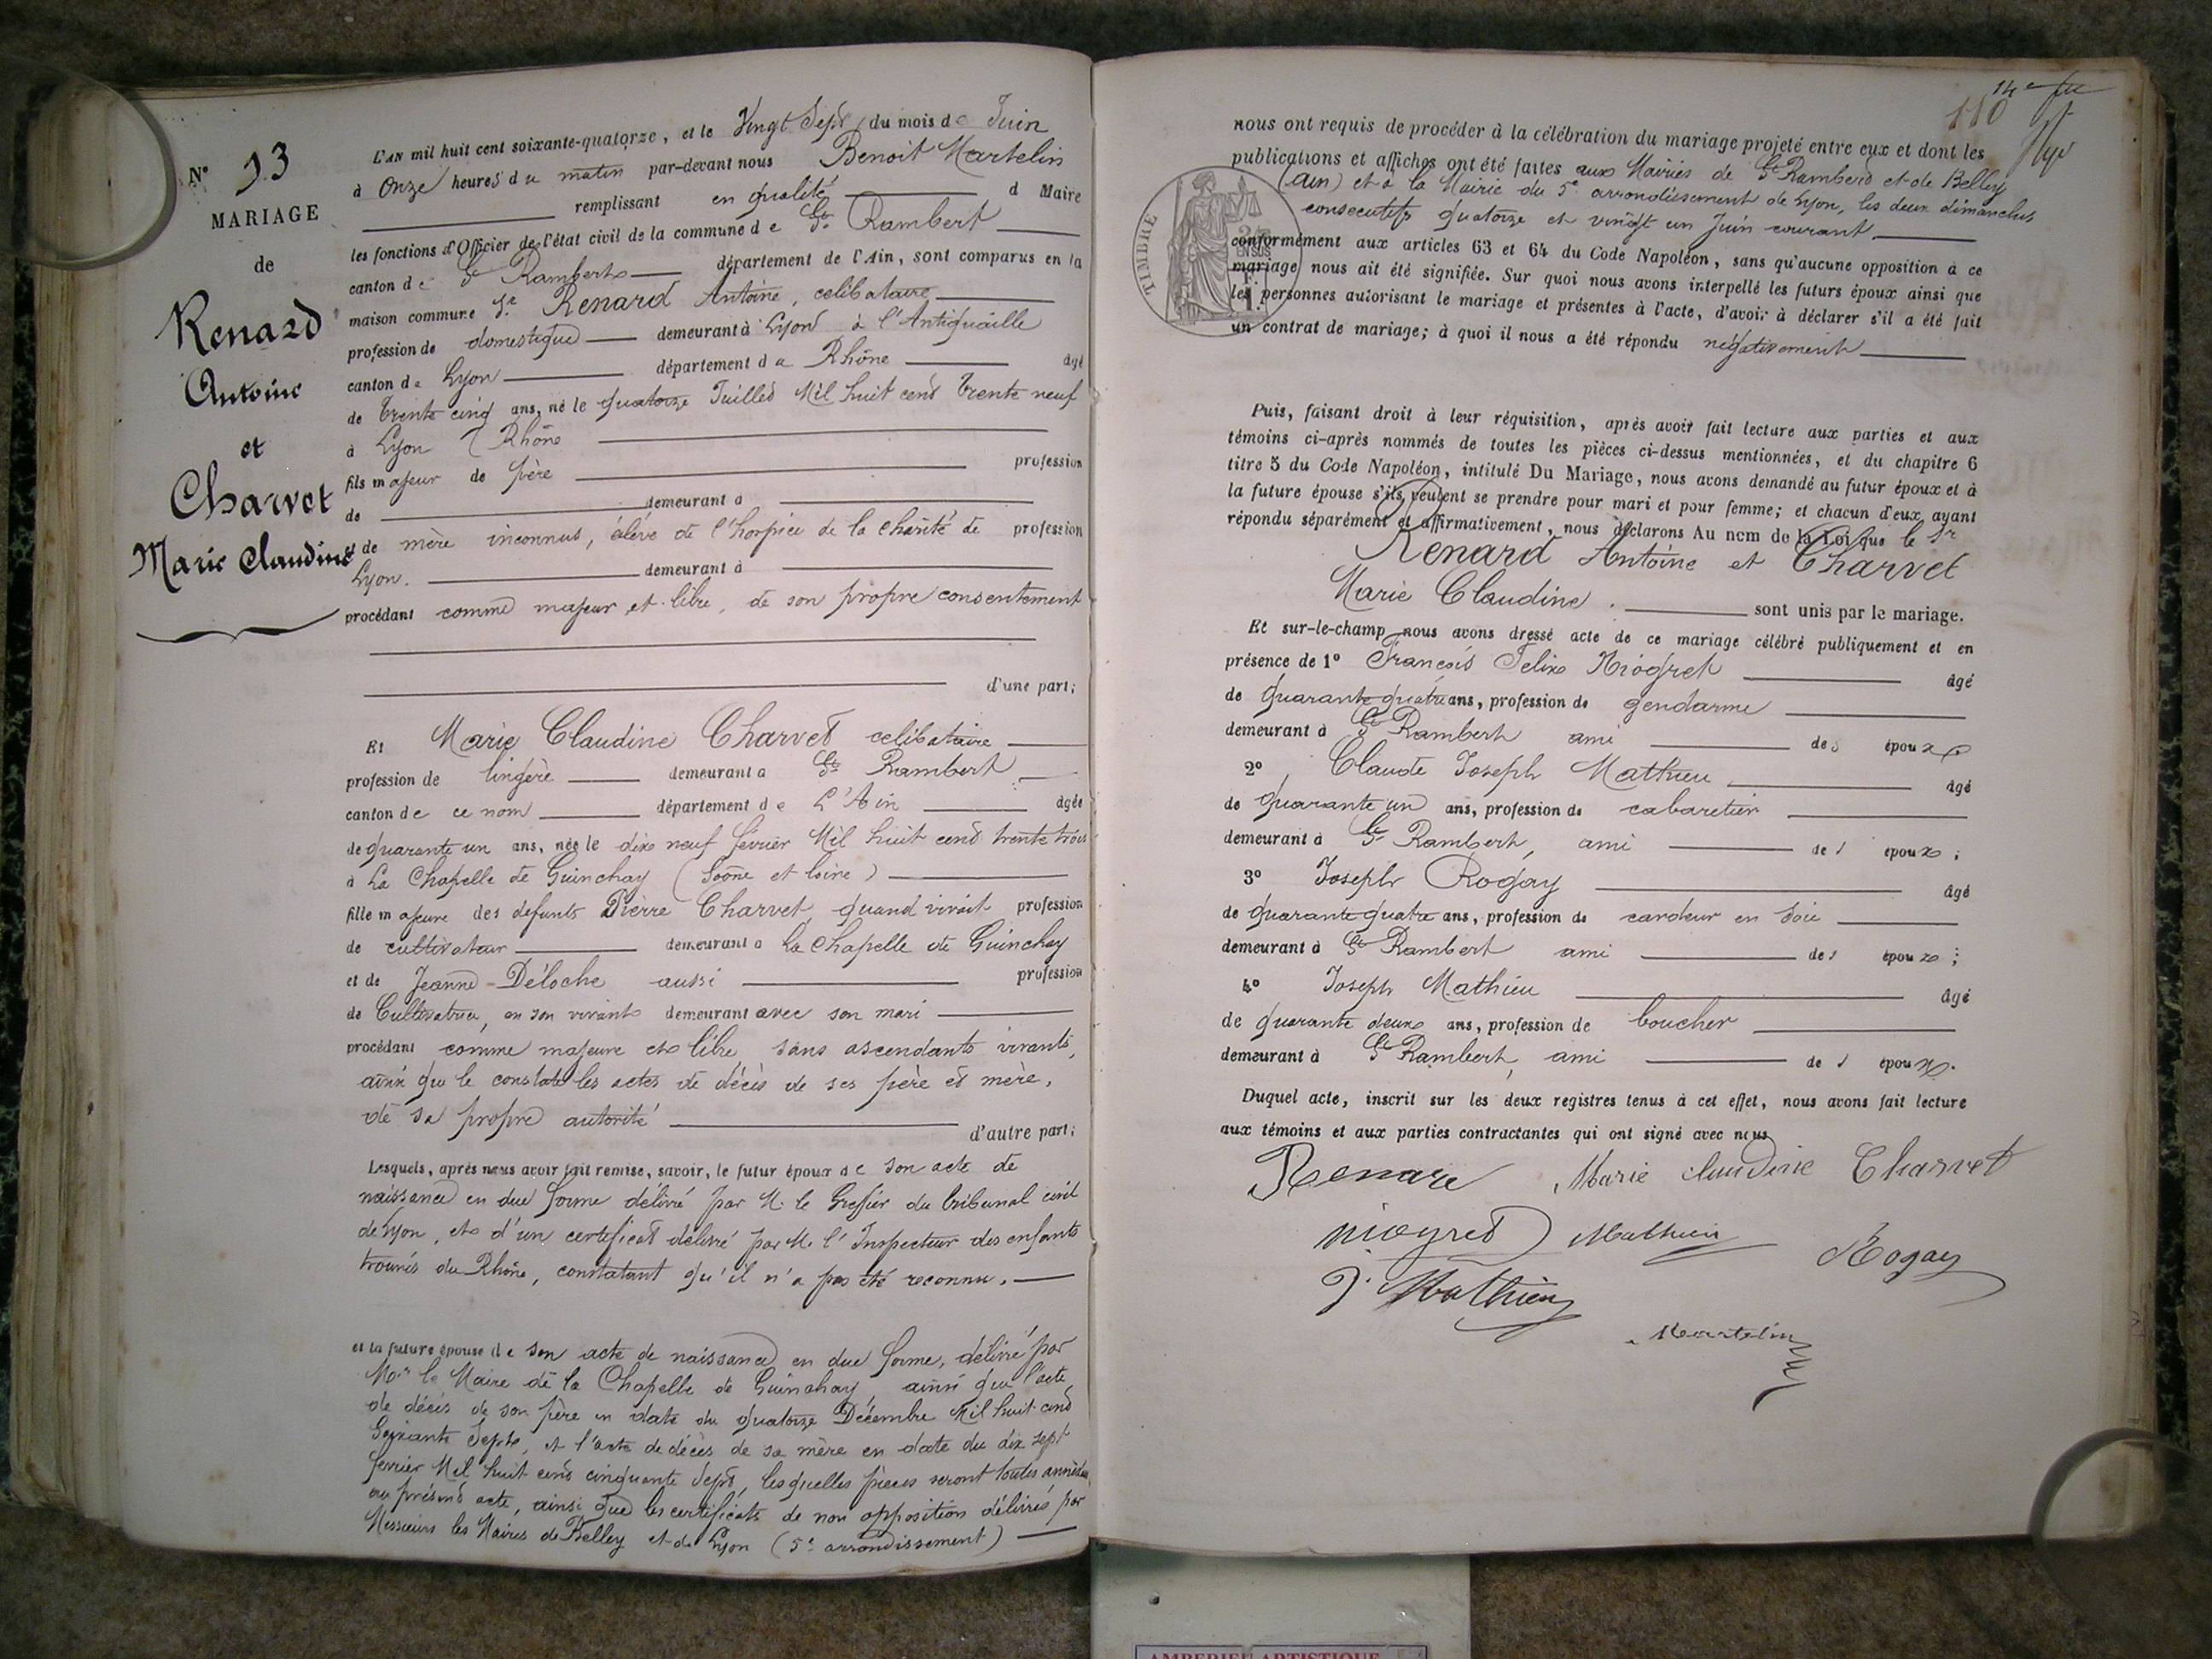 N° 13
MARIAGE
de
Renard
Antoine
et
Charvet
Marie Claudine
L'AN mil huit cent soixante-quatorze, et le Vingt Sept du mois de Juin
à Onze heures du matin par-devant nous Benoit Martelin
remplissant en qualité d Maire
les fonctions d'Officier de l'état civil de la commune de St Rambert
canton de St Rambert département de l'Ain, sont comparus en la
maison commune Sr Renard Antoine, celibataire
profession de domestique demeurant à Lyon à l'Antiquaille
canton de Lyon département du Rhône âgé
de trente cinq ans, né le quatorze Juillet Mil huit cent trente neuf
à Lyon (Rhône
fils majeur de père profession
de demeurant à
et de mère inconnus, élève de l'hospice de la Charité de profession
Lyon. demeurant à
procédant comme majeur et libre, de son propre consentement
d'une part;
Et Marie Claudine Charvet celibataire
profession de lingère demeurant à St Rambert
canton de ce nom département de L'Ain âgée
de quarante un ans, née le dix neuf février Mil huit cent trente trois
à La Chapelle de Guinchay (Saône et Loire)
fille majeure des defunts Pierre Charvet, quand vivait profession
de cultivateur demeurant à La Chapelle de Guinchay
et de Jeanne Déloche aussi profession
de Cultivatrice, en son vivant demeurant avec son mari
procédant comme majeure et libre, sans ascendants vivants,
ainsi que le constate les actes de décès de ses père et mère,
de sa propre autorité
d'autre part;
Lesquels, après nous avoir fait remise, savoir, le futur époux de son acte de
naissance en due forme délivré par M. le Greffier du tribunal civil
de Lyon, et d'un certificat délivré par M. l'Inspecteur des enfants
trouvés du Rhône, constatant qu'il n'a pas été reconnu.
et la future épouse de son acte de naissance en due forme, délivré par
Mr le Maire de la Chapelle de Guinchay, ainsi que l'acte
de décès de son père en date du quatorze Décembre Mil huit cent
Soixante Sept, et l'acte de décès de sa mère en date du dix sept
fevrier Mil huit cent cinquante Sept, lesquelles pièces seront toutes annexées
au présent acte, ainsi que les certificats de non opposition délivrés par
Messieurs les Maires de Belley et de Lyon (5e arrondissement)
110
nous ont requis de procéder à la célébration du mariage projeté entre eux et dont les
publications et affiches ont été faites aux Mairies de St Rambert et de Belley
(Ain) et à la Mairie du 5e arrondissement de Lyon, les deux dimanches
consecutifs quatorze et vingt un Juin courant
TIMBRE
conformément aux articles 63 et 64 du Code Napoléon, sans qu'aucune opposition à ce
mariage nous ait été signifiée. Sur quoi nous avons interpellé les futurs époux ainsi que
les personnes autorisant le mariage et présentes à l'acte, d'avoir à déclarer s'il a été fait
un contrat de mariage; à quoi il nous a été répondu négativement
Puis, faisant droit à leur réquisition, après avoir fait lecture aux parties et aux
témoins ci-après nommés de toutes les pièces ci-dessus mentionnées, et du chapitre 6
titre 5 du Code Napoléon, intitulé Du Mariage, nous avons demandé au futur époux et à
la future épouse s'ils veulent se prendre pour mari et pour femme; et chacun d'eux ayant
répondu séparément et affirmativement, nous déclarons Au nom de la Loi que le Sr
Renard Antoine et Charvet
Marie Claudine. sont unis par le mariage.
Et sur-le-champ nous avons dressé acte de ce mariage célébré publiquement et en
présence de 1° François Felix Niogret âgé
de quarante quatre ans, profession de gendarme
demeurant à St Rambert ami des époux
2° Claude Joseph Mathieu âgé
de quarante un ans, profession de cabaretier
demeurant à St Rambert, ami des époux;
3° Joseph Rogay âgé
de quarante quatre ans, profession de cardeur en soie
demeurant à St Rambert ami des époux;
4° Joseph Mathieu âgé
de quarante deux ans, profession de boucher
demeurant à St Rambert, ami des époux.
Duquel acte, inscrit sur les deux registres tenus à cet effet, nous avons fait lecture
aux témoins et aux parties contractantes qui ont signé avec nous
Renard Marie Claudine Charvet
Niogret Mathieu Rogay
J. Mathieu
Martelin
AMBERIEU ARTISTIQUE